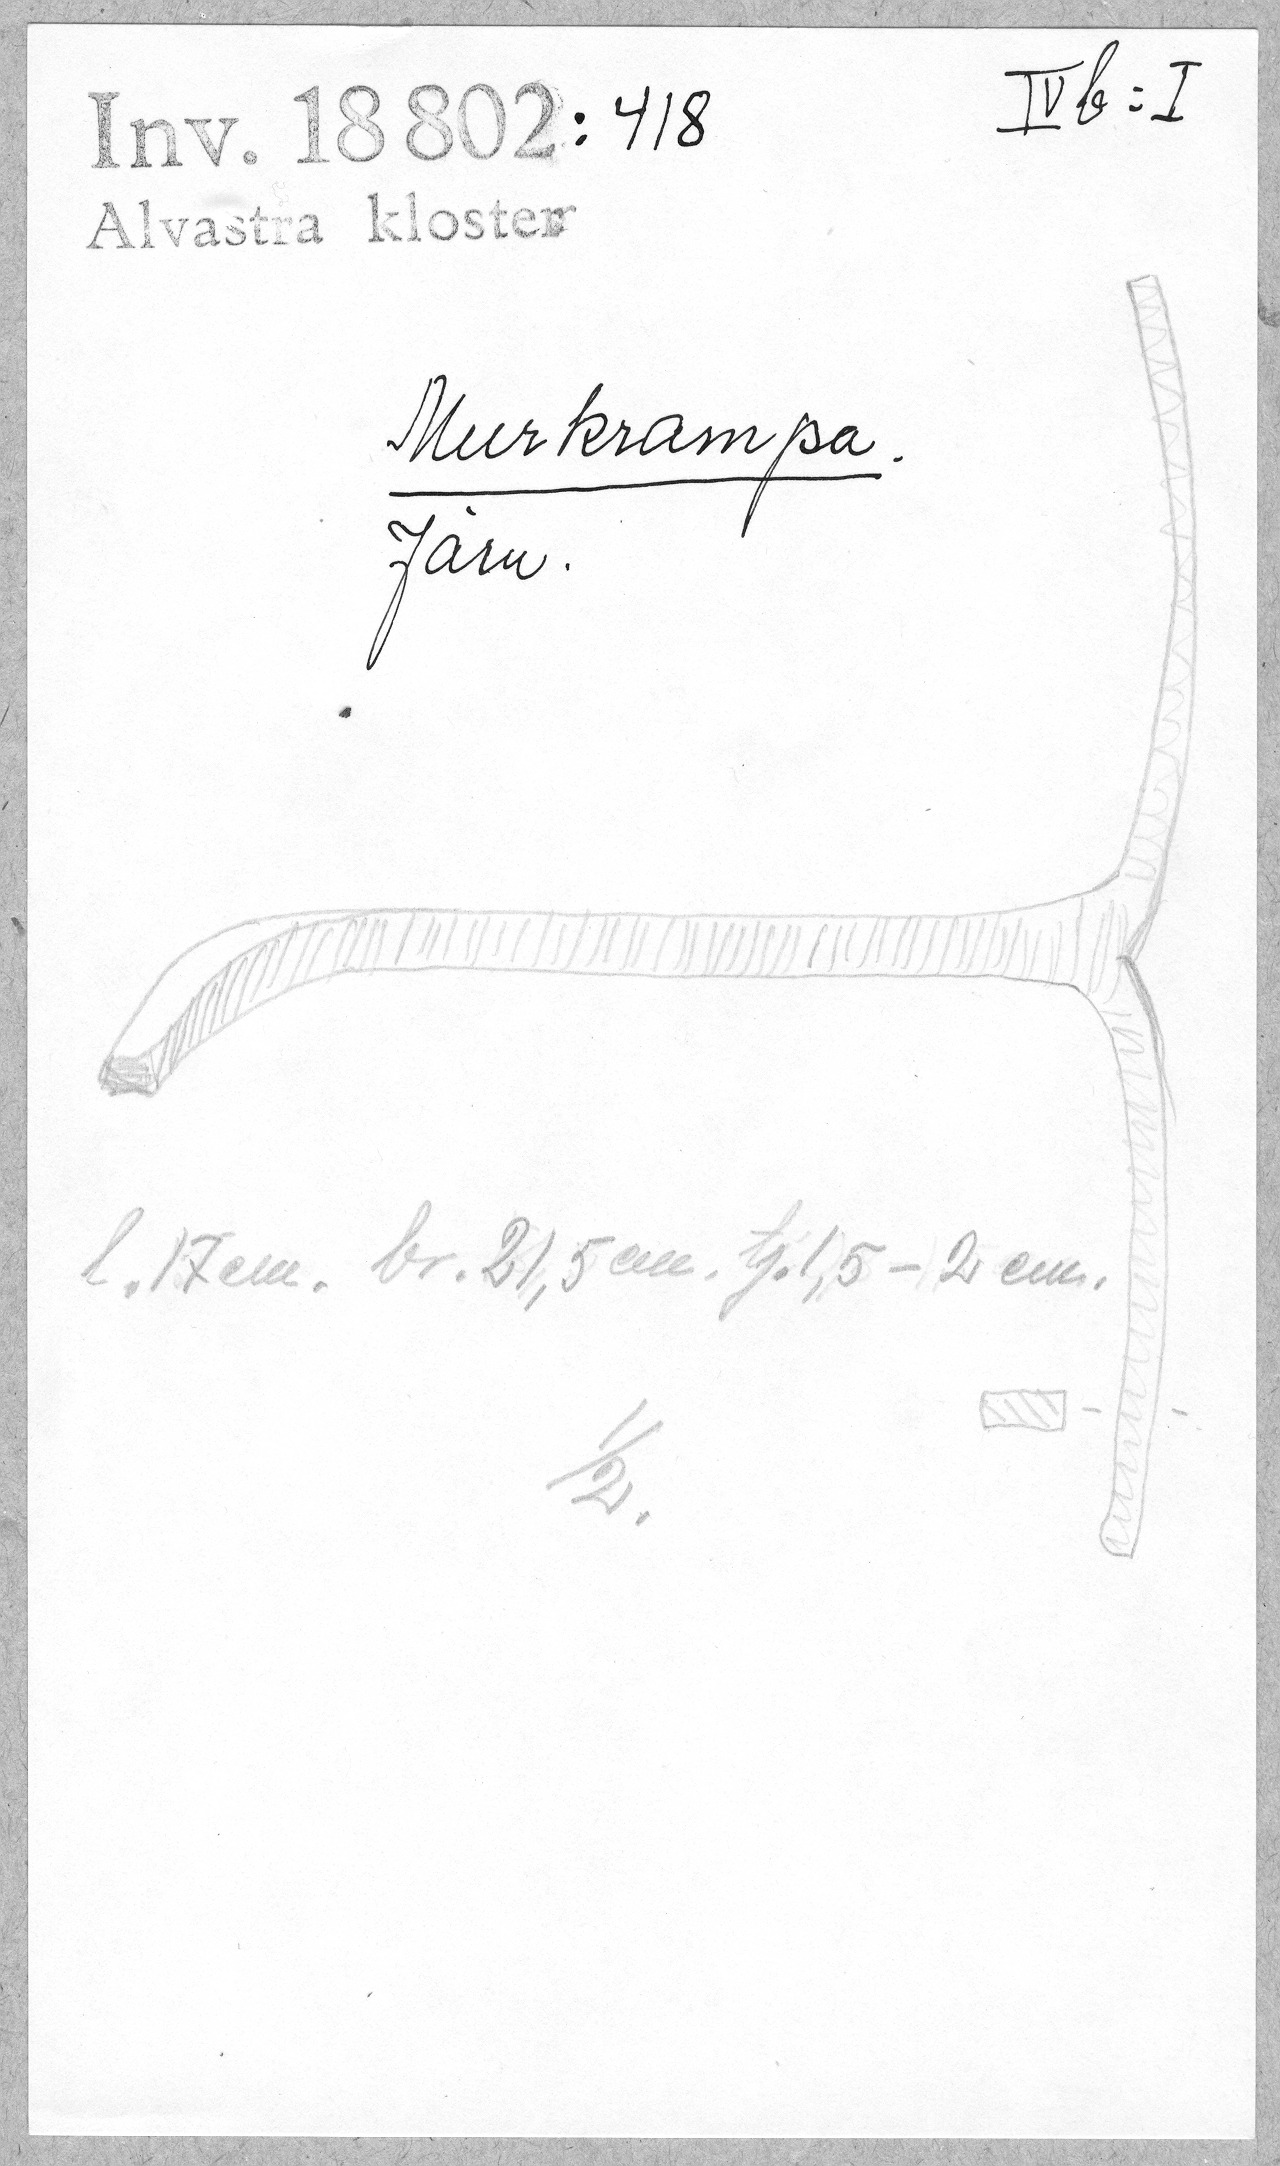 Inv. 18802:418
IVb:I
Alvastra kloster
Murkrampa.
Järn.
l. 17 cm. br. 21,5 cm. tj. 1,5 – 2 cm.
1/2.